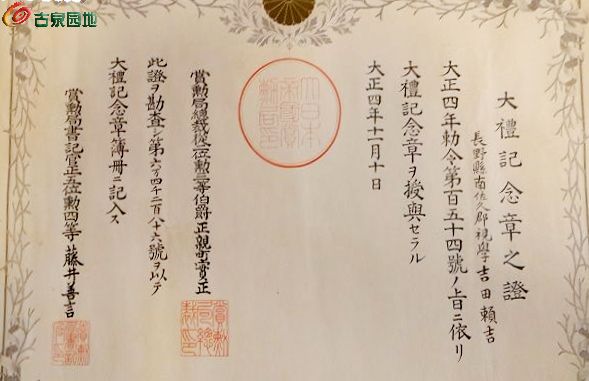 古泉园地
大禮記念章之證
長野縣南佐久郡視學吉田賴吉
大正四年勅令第百五十四號ノ上旨ニ依リ
大禮記念章ヲ授與セラル
大正四年十一月十日
大日本
帝國賞
勲局印
賞勲局總裁從二位勲二等伯爵正親町實正
此證ヲ勘査シ第六万四千二百八十六號ヲ以テ
大禮記念章ノ簿冊ニ記入ス
賞勲局書記官正五位勲四等藤井善言
賞勲
局總
裁印